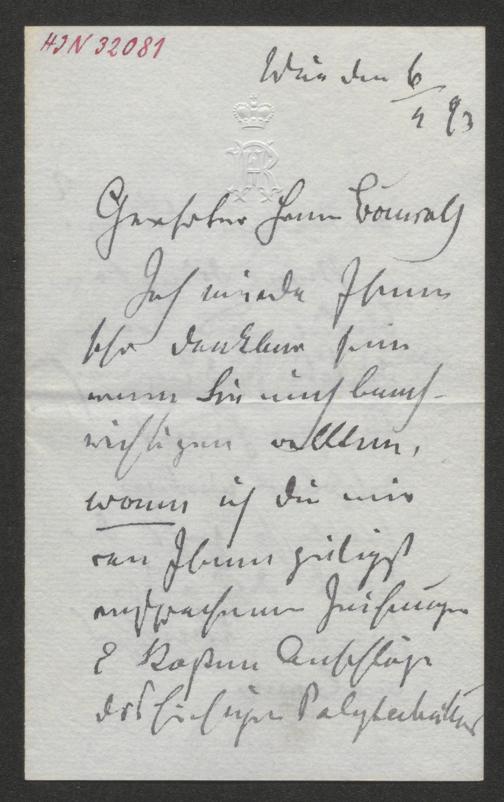 HIN 32081
Wien den 6/4 93
Geehrter Herr Baurath
Ich würde Ihnen
sehr dankbar sein
wenn Sie mich benach-
richtigen wollten,
wann ich die mir
von Ihnen gütigst
versprochenen Zeichnungen
& Kosten Anschläge
des hiesigen Polytechnikums